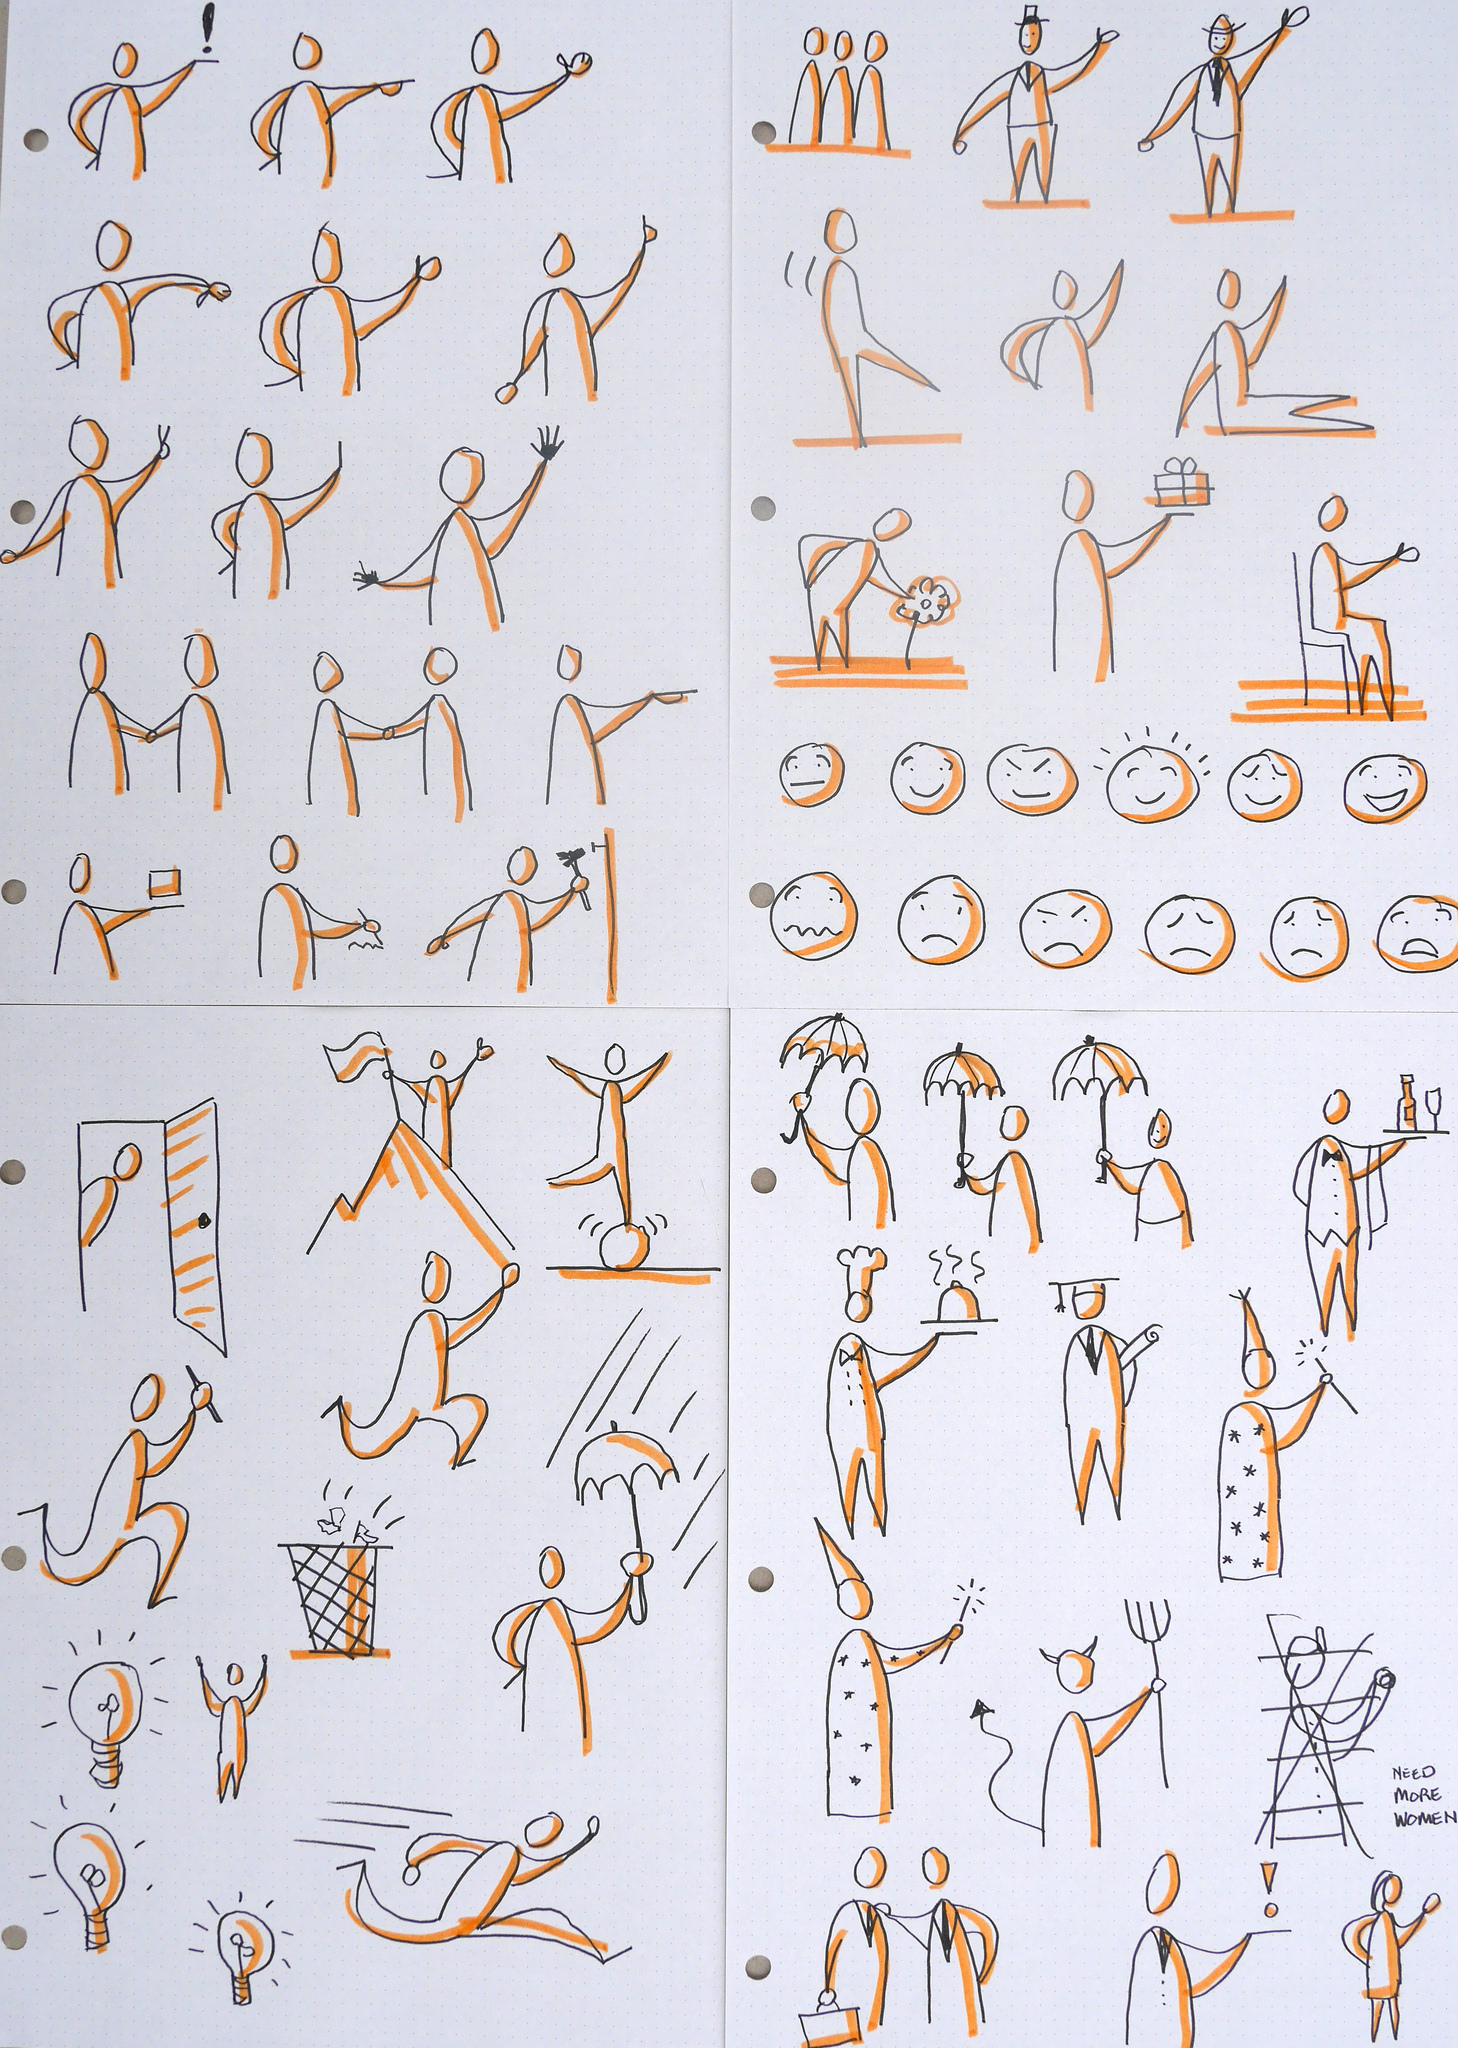 !
NEED
MORE
WOMEN
!